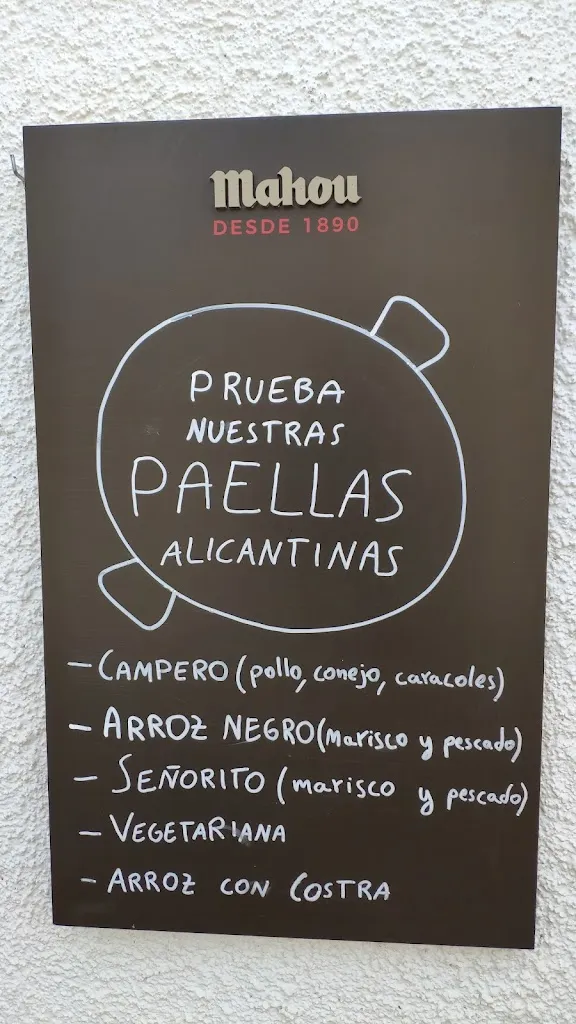 Mahou
DESDE 1890
PRUEBA
NUESTRAS
PAELLAS
ALICANTINAS
- CAMPERO (pollo, conejo, caracoles)
- ARROZ NEGRO (marisco y pescado)
- SEÑORITO (marisco y pescado)
- VEGETARIANA
- ARROZ CON COSTRA